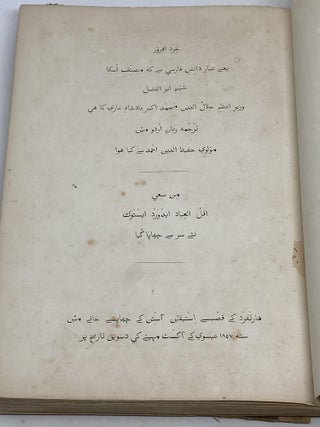 خرد افروز
یعنے عیار دانش فارسي سے کہ مصنف اُسکا
شیخ ابو الفضل
وزیر اعظم جلال الدین محمد اکبر بادشاہ غازي کا هي
ترجمہ زبان اُردو میں
مولوي حفیظ الدین احمد سے کیا هوا
من سعي
اقل العباد ایدورد ایستوک
نئے سر سے چھاپا گیا
هارتفرد کے قصبے استیفن آستن کے چھاپے خانے میں
سنہ ۱۸۵۷ عیسوي کے آگست مہینے کي دسویں تاریخ پر